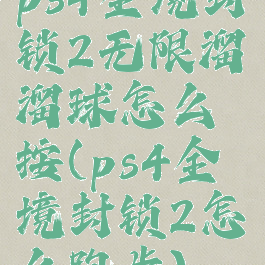 ps4全境封
锁2无限溜
溜球怎么
按(ps4全
境封锁2怎
么跑步)